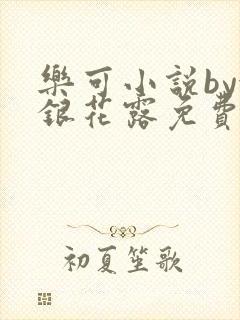 樂可小説by
銀花露免費
初夏笙歌